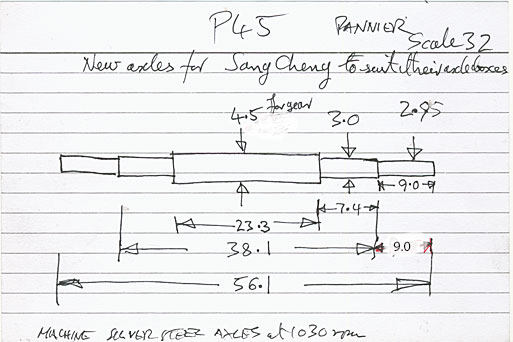 P45 PANNIER
Scale 32
New axles for SangCheng to suit their axleboxes
4.5 for gear 3.0 2.95
9.0
7.4
23.3
38.1 9.0
56.1
MACHINE SILVER STEEL AXLES at 1030 rpm